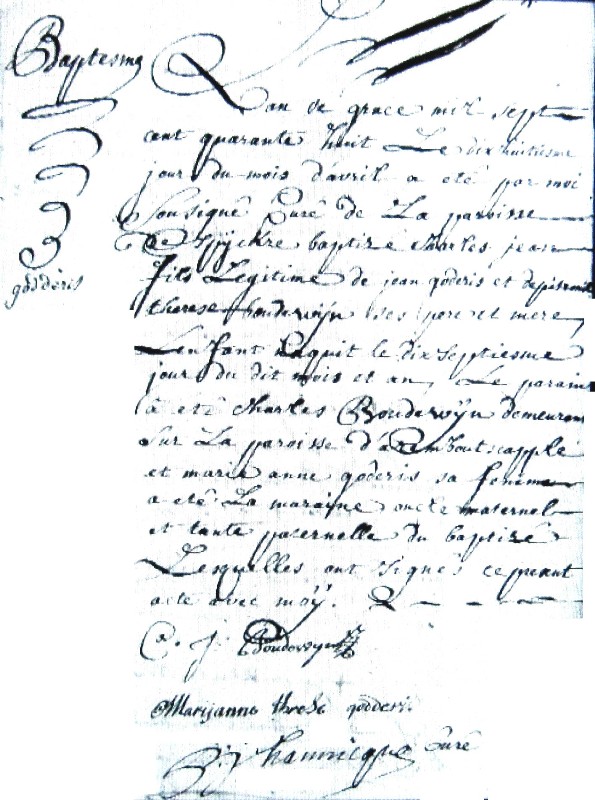 Baptesme
godderis
L'an de grace mil sept
cent quarante huit Le dixhuitiesme
jour du mois d'avril a eté par moi
Sousigné Curé de La paroisse
de Spÿckre baptizé charles jean
fils Legitime de jean goderis et de
therese boudewÿn ses pere et mere,
L'enfant naquit le dix Septiesme
jour du dit mois et an, Le parain
à eté charles Boudewÿn demeurant
Sur La paroisse d'aremboutscapple
et marie anne goderis sa femme
a eté La maraine oncle maternel
et tante paternelle du baptizé
Lesquelles ont Signés ce pnant
acte avec moÿ.
C. j. Boudewyn
Marijanne threse godderi.
Curé